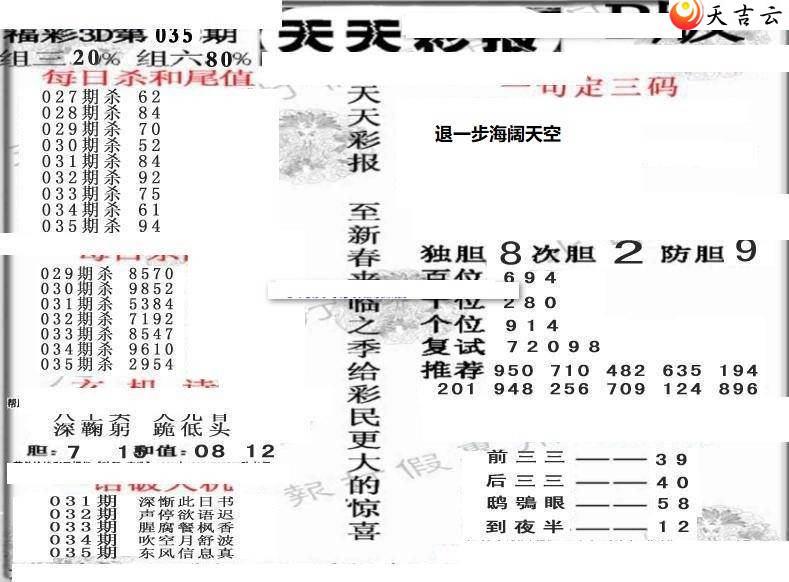 天吉云
福彩3D第035期
【天天彩报】
组三20% 组六80%
每日杀和尾值
027期杀 62
028期杀 84
029期杀 70
030期杀 52
031期杀 84
032期杀 92
033期杀 75
034期杀 61
035期杀 94
029期杀 8570
030期杀 9852
031期杀 5384
032期杀 7192
033期杀 8547
034期杀 9610
035期杀 2954
深鞠躬 跪低头
胆:7 15和值:08 12
031期 深惭此日书
032期 声停欲语迟
033期 腥腐餐枫香
034期 吹空月舒波
035期 东风信息真
天天彩报
至新春来临之季给彩民更大的惊喜
一句定三码
退一步海阔天空
独胆8次胆2防胆9
百位 694
十位 280
个位 914
复试 72098
推荐 950 710 482 635 194
201 948 256 709 124 896
前三三——39
后三三——40
鸱鸮眼——58
到夜半——12